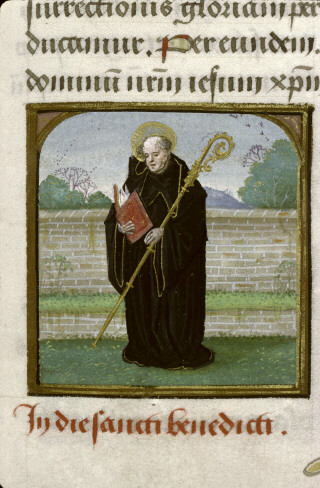 surrectionis gloriam per
ducamur. Per eundem.
dominū nrm̄ iesum xp̄m
In die sancti benedicti.